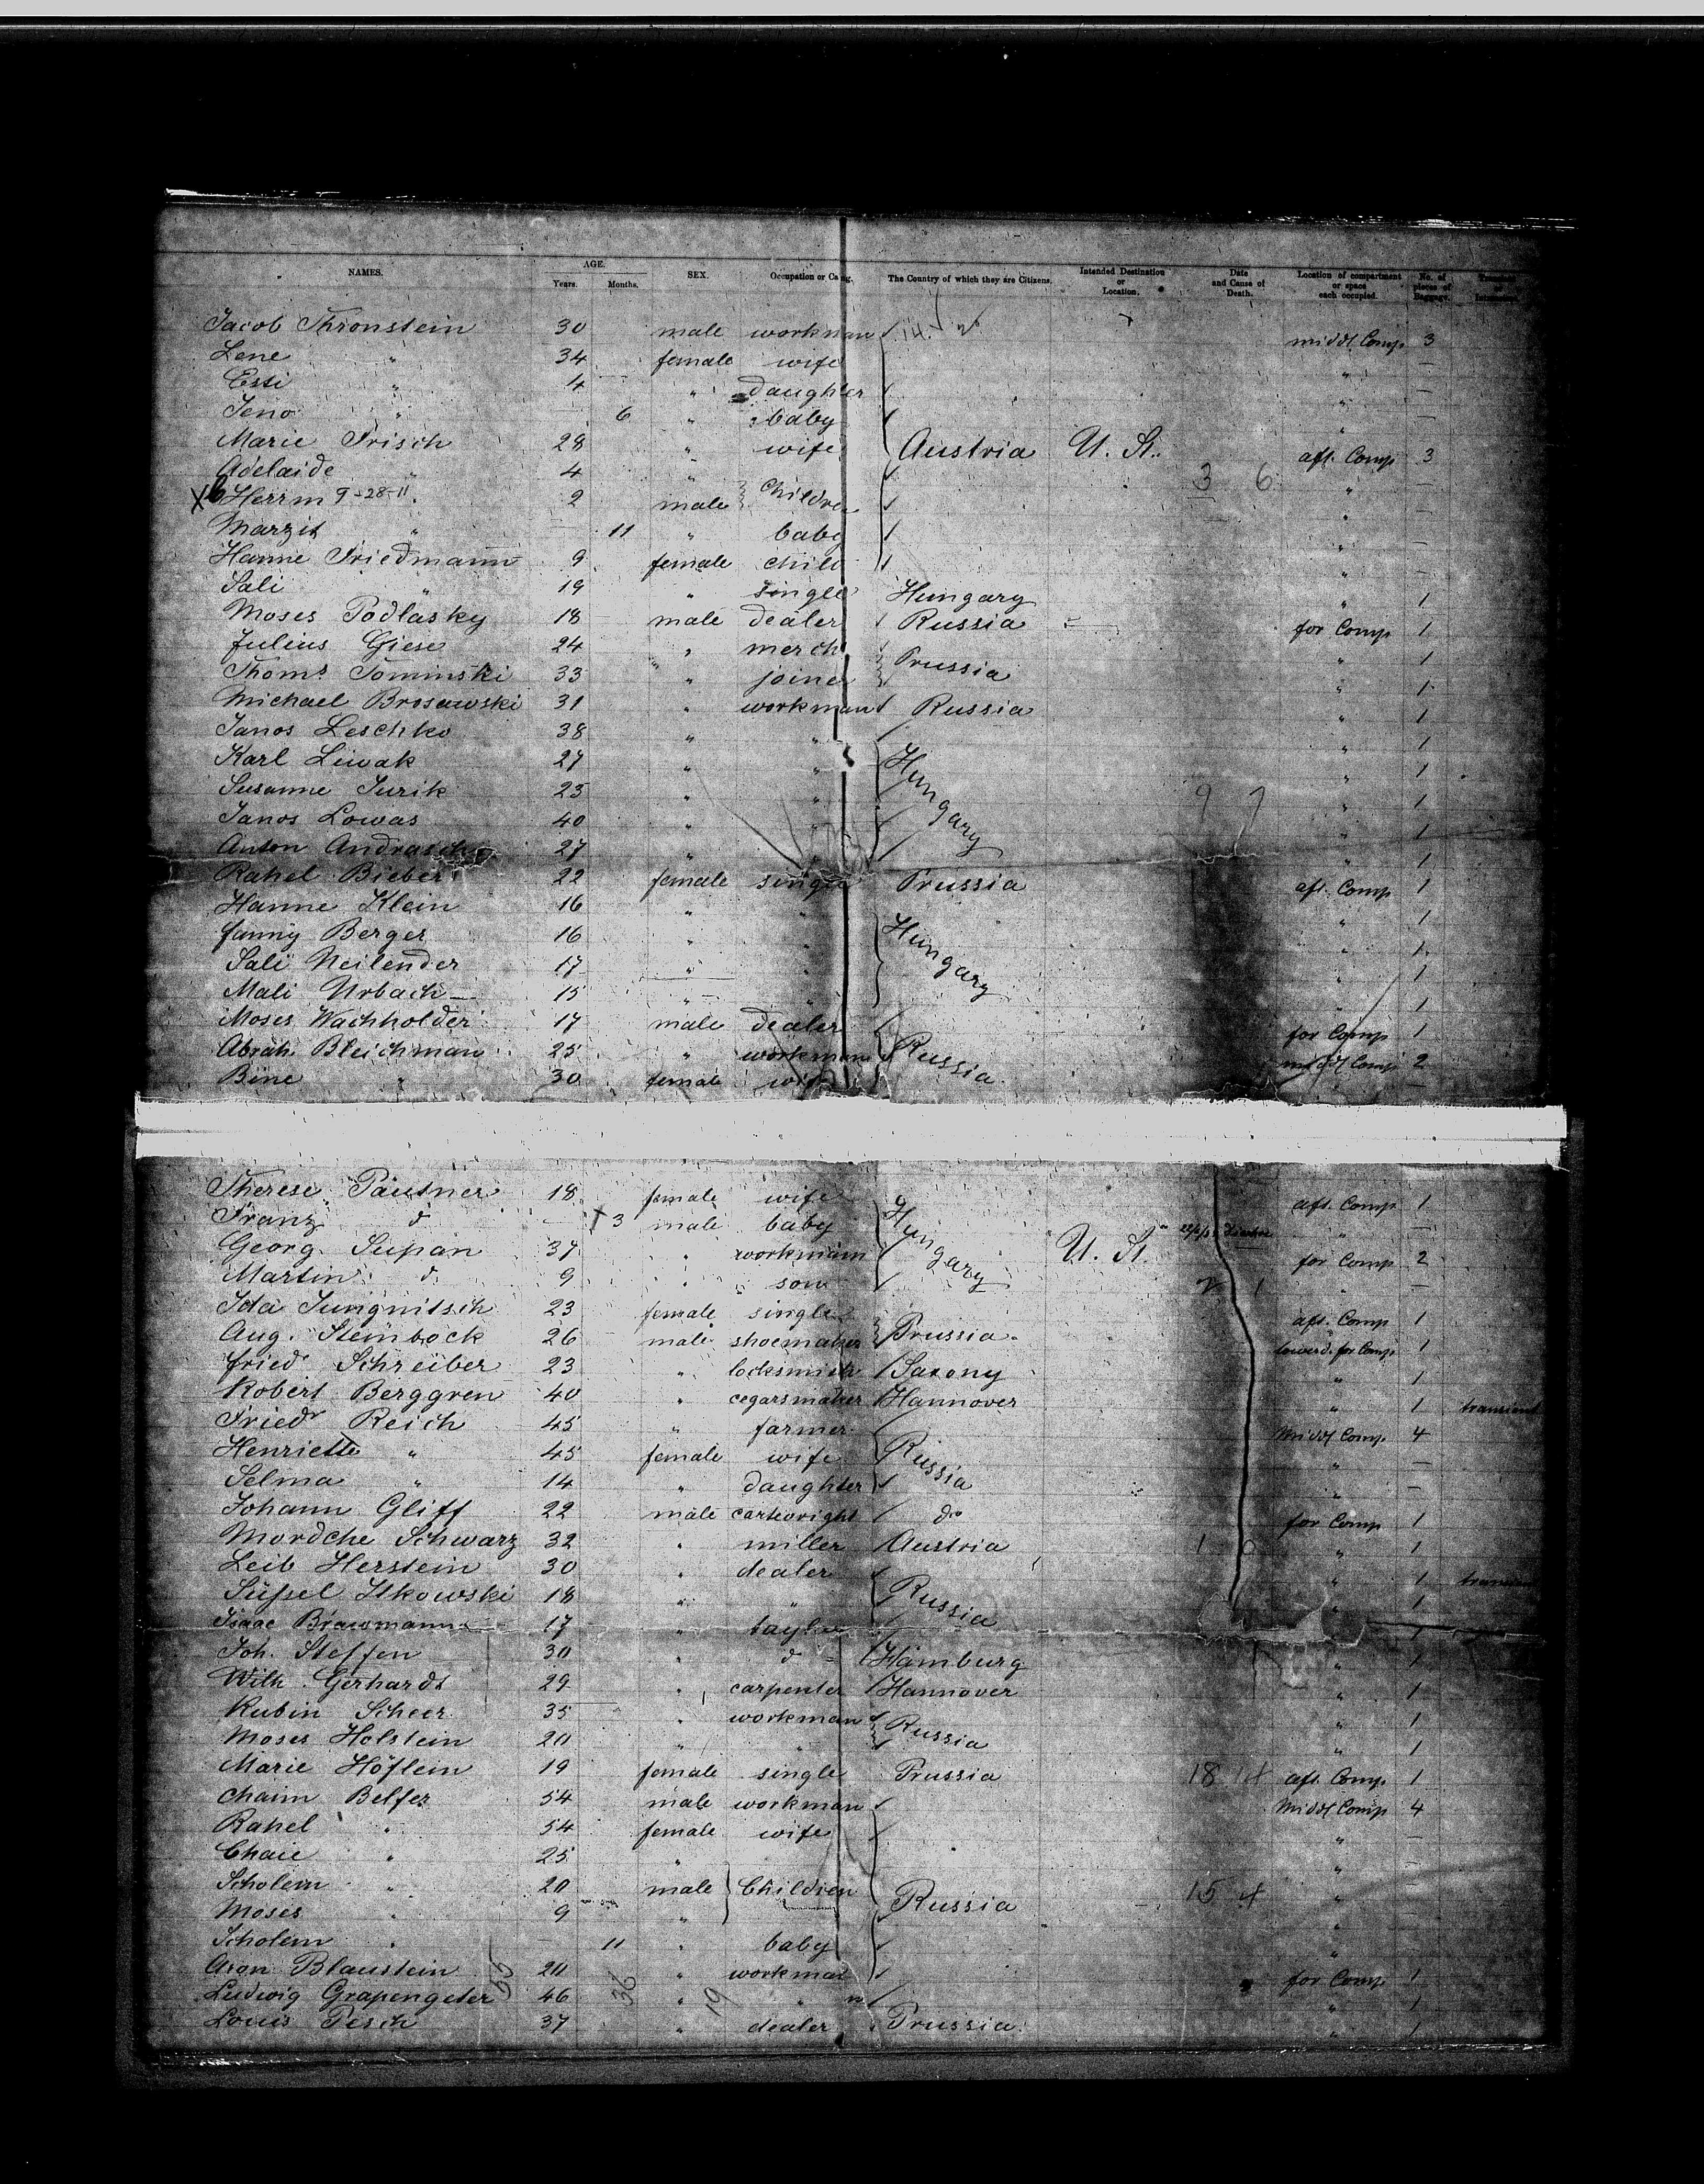 NAMES. AGE. Years. Months. SEX. Occupation or Ca ng. The Country of which they are Citizens. Intended Destination or Location. Date and Cause of Death. Location of compartment or space each occupied. No. of pieces of Baggage.
Jacob Thronstein 30 male workman middl. Comp 3
Lene " 34 female wife " —
Essi " 4 " daughter " —
Jeno " 6 " baby " —
Marie Frisch 28 " wife Austria U. St. aft. Comp 3
Adelaide " 4 3 6 " —
X Herrm 9-28-11 2 male Children " —
Marzit " 11 " baby " —
Hanne Friedmann 9 female child " —
Sali " 19 " single Hungary " 1
Moses Podlasky 18 male dealer Russia for Comp 1
Julius Giese 24 " merch Prussia " 1
Thoms Tominski 33 " joiner " 1
Michael Brosawski 31 " workman Russia " 1
Janos Leschko 38 " " Hungary " 1
Karl Liwak 27 " " " 1
Susanne Jurik 23 " " 9 7 " 1
Janos Lowas 40 " " " 1
Anton Andrasch 27 " " " 1
Rahel Bieber 22 female single Prussia aft. Comp 1
Hanne Klein 16 " " Hungary " 1
Fanny Berger 16 " " " 1
Sali Neilender 17 " " " 1
Mali Urbach 15 " " " 1
Moses Wachholder 17 male dealer Russia for Comp 1
Abrah. Bleichman 25 " workman middl Comp 2
Bine " 30 female wife " —
Therese Pautner 18 female wife Hungary aft. Comp 1
Franz d † 3 male baby " —
Georg. Supan 37 " workmain U. St. for Comp 2
Martin d 9 " son 2 1 " —
Ida Jungnitsch 23 female single Prussia aft. Comp 1
Aug. Steinbock 26 male shoemaker lowerd. for Comp. 1
Fried Schreiber 23 " locksmith Saxony " 1
Robert Berggren 40 " cegarsmaker Hannover " 1 transient
Friedr Reich 45 " farmer Russia Middl Comp. 4
Henriette " 45 female wife " —
Selma " 14 " daughter " —
Johann Gliff 22 male cartwright do for Comp 1
Mordche Schwarz 32 " miller Austria 1 0 " 1
Leib Herstein 30 " dealer Russia " 1 transient
Süssel Itkowski 18 " " " 1
Isaac Brawmann 17 " taylor 1
Joh. Steffen 30 " d Hamburg " 1
Wilh. Gerhardt 29 " carpenter Hannover " 1
Rubin Scheer 35 " workman Russia " 1
Moses Holstein 20 " " " 1
Marie Höflein 19 female single Prussia 18 aft. Comp. 1
Chaim Belfer 54 male workman Russia Middl Comp 4
Rahel " 54 female wife " —
Chaie " 25 " " —
Scholem " 20 male Children 15 4 " —
Moses " 9 " " —
Scholem " 11 " baby " —
Aron Blaustein 20 " workman for Comp 1
Ludwig Grapengeter 46 " " " 1
Louis Pesch 37 " dealer Prussia " 1
55 36 19